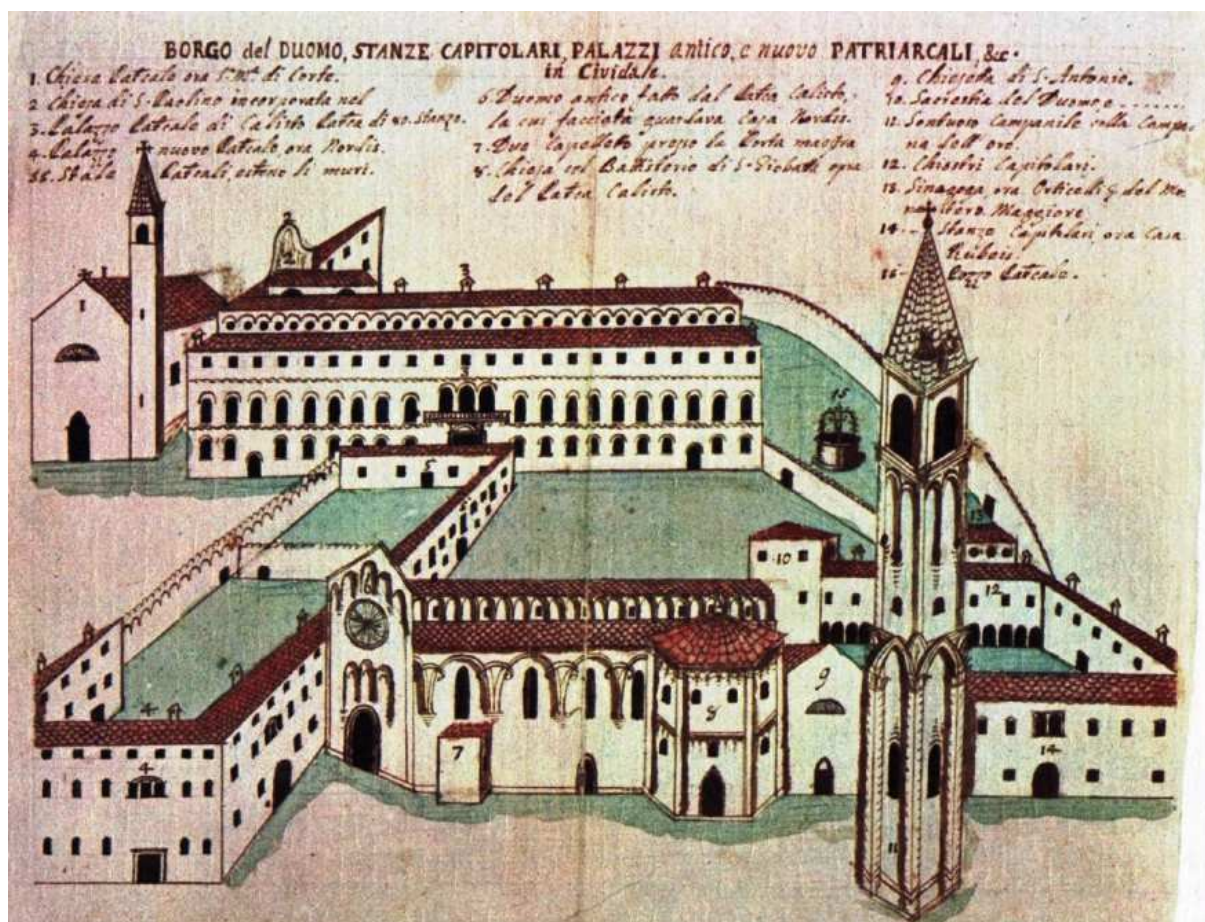 BORGO del DUOMO, STANZE CAPITOLARI, PALAZZI antico, e nuovo PATRIARCALI, &c.
in Cividale.
1. Chiesa Patcale ora S. M. di Corte.
2 Chiesa di S. Paolino incorporata nel
3. Palazzo Patcale di Calisto Patca di 80. stanze.
4. Palazzo nuovo Patcale, ora Nordis.
Patcali, li muri.
6. Duomo antico fatto dal Patca Calisto,
la cui facciata guardava casa Nordis.
7. Due Capellete presso la Porta
8. Chiesa col Battisterio di S. Giobatta opra
del Patca Calisto.
9. Chiesetta di S. Antonio.
10. Sacrestia del Duomo e . . . . . .
11. Sontuoso Campanile colla Campa=
na dell' oro.
12. Chiostri Capitolari.
13. Sinagoga ora Orticelli del Mo
Maggiore
14. - Stanze Capitolari ora Casa
Rubeis
15 - Pozzo Patcale.
1
2
3
3
15
5
13
10
12
4
4
7
8
9
14
11